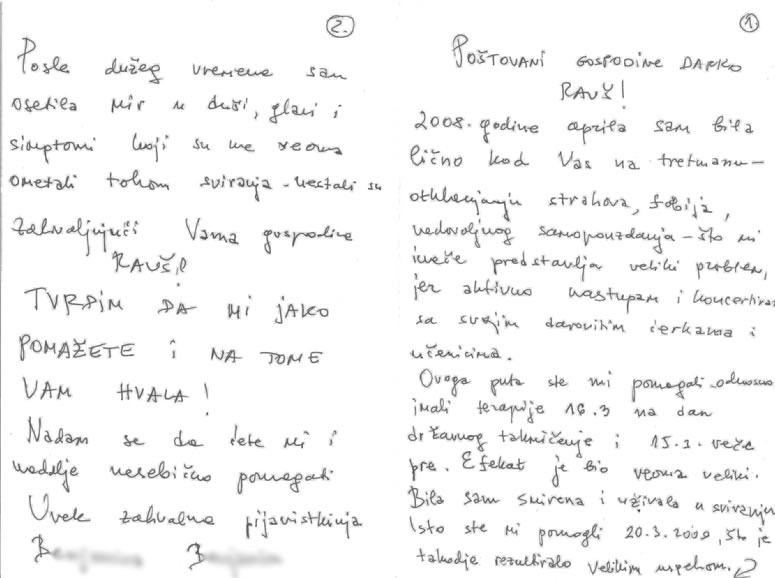 1.
POŠTOVANI GOSPODINE DARKO
RAUŠ!
2008. godine aprila sam bila
lično kod Vas na tretmanu-
otklanjanju strahova, fobija,
nedovoljnog samopouzdanja - što mi
inače predstavlja veliki problem,
jer aktivno nastupam i koncertiram
sa svojim darovitim ćerkama i
učenicima.
Ovoga puta ste mi pomogali odnosno
imali terapije 16.3 na dan
državnog takmičenje i 15.3. veče
pre. Efekat je bio veoma veliki.
Bila sam smirena i uživala u sviranju
Isto ste mi pomogli 20.3.2009, što je
takodje rezultiralo velikim uspehom.
2.
Posle dužeg vremena sam
osetila mir u duši, glavi i
simptomi koji su me veoma
ometali tokom sviranja - nestali su
zahvaljujući Vama gospodine
RAUŠ!
TVRDIM DA MI JAKO
POMAŽETE I NA TOME
VAM HVALA!
Nadam se da ćete mi i
nadalje nesebično pomagati
Uvek zahvalna pijanistkinja
B B